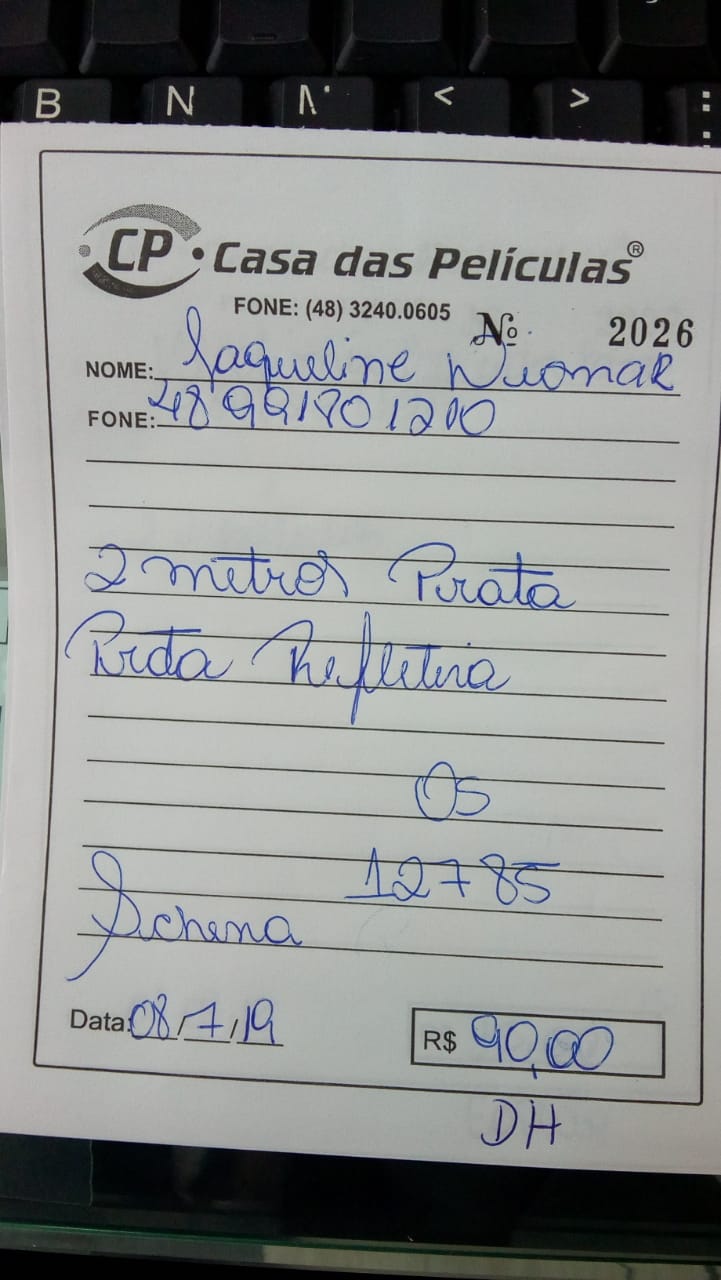 B N M < >
CP • Casa das Películas®
FONE: (48) 3240.0605 Nº 2026
NOME: Jaqueline
FONE: 48 991801210
2 metros Pirata
Preta Refletiva
OS
12785
Schena
Data: 08/7/19 R$ 90,00
DH